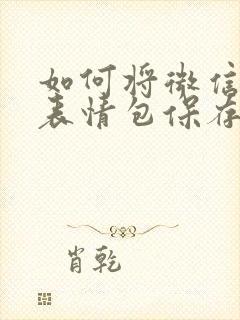 如何将微信
表情包保存
肖乾